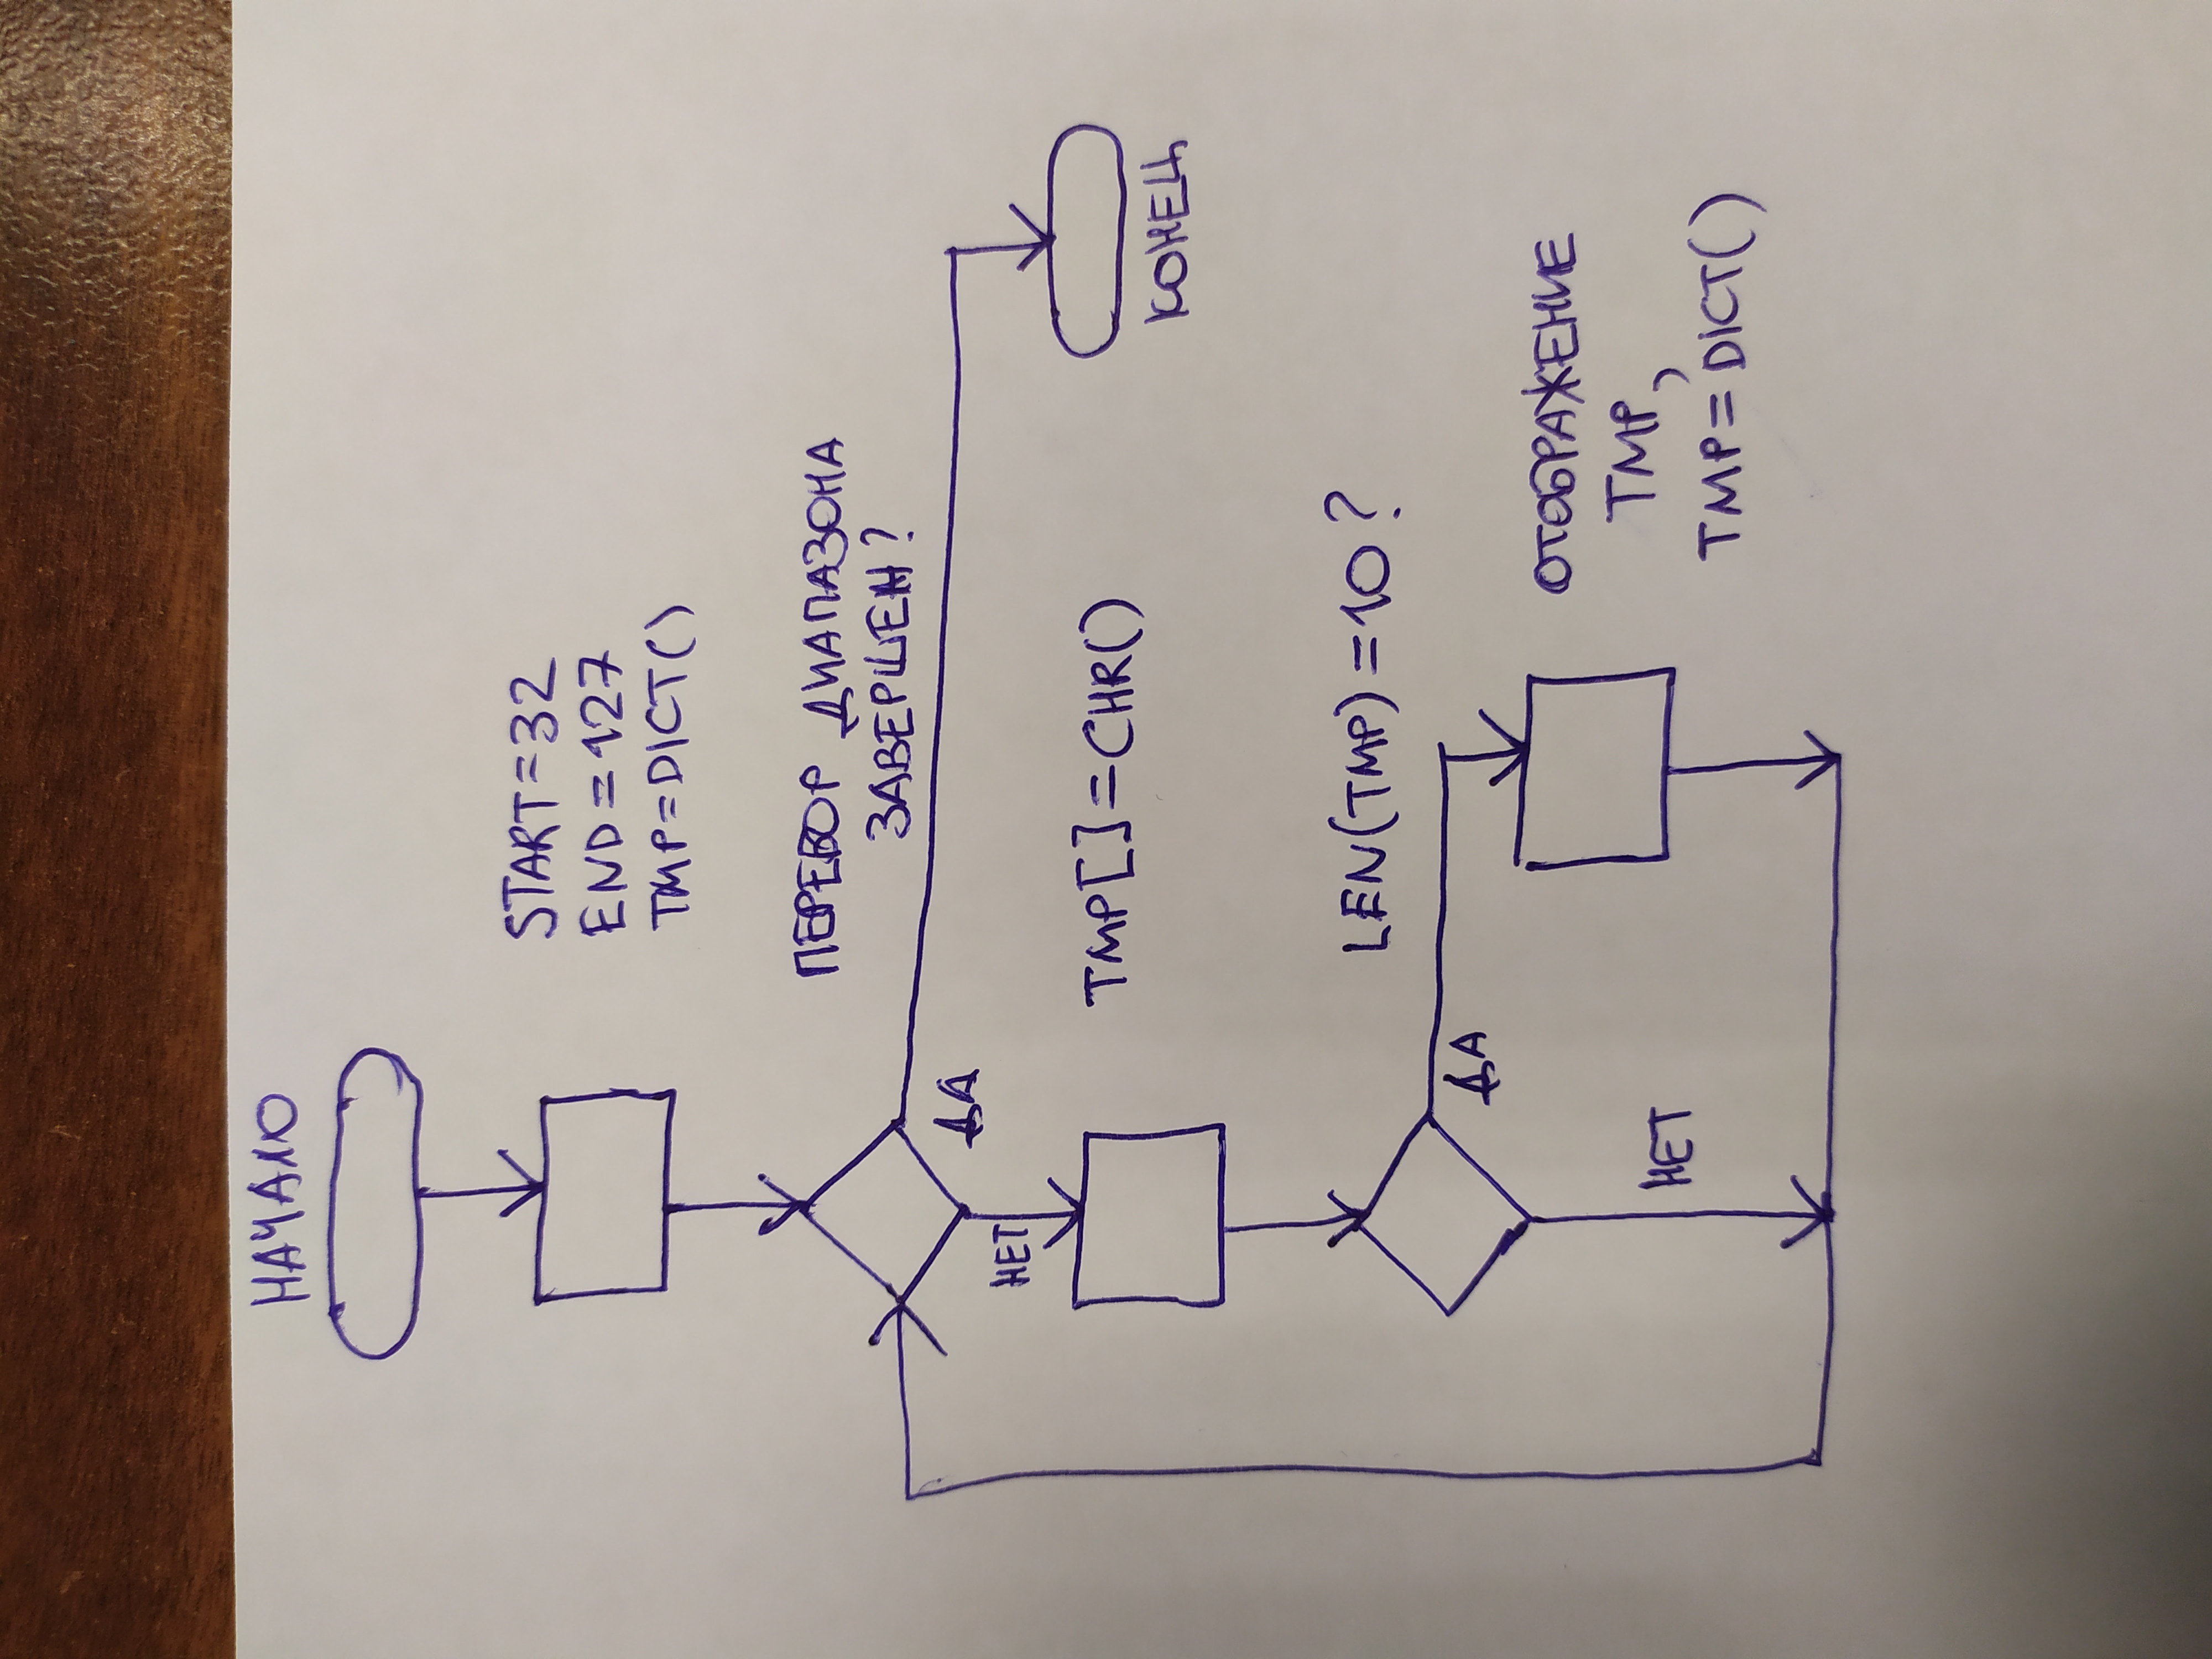 НАЧАЛО
START=32
END=127
TMP=DICT()
ПЕРЕБОР ДИАПАЗОНА
ЗАВЕРШЕН?
ДА
НЕТ
TMP[]=CHR()
КОНЕЦ
LEN(TMP)=10?
ДА
ОТОБРАЖЕНИЕ
TMP,
НЕТ
TMP=DICT()